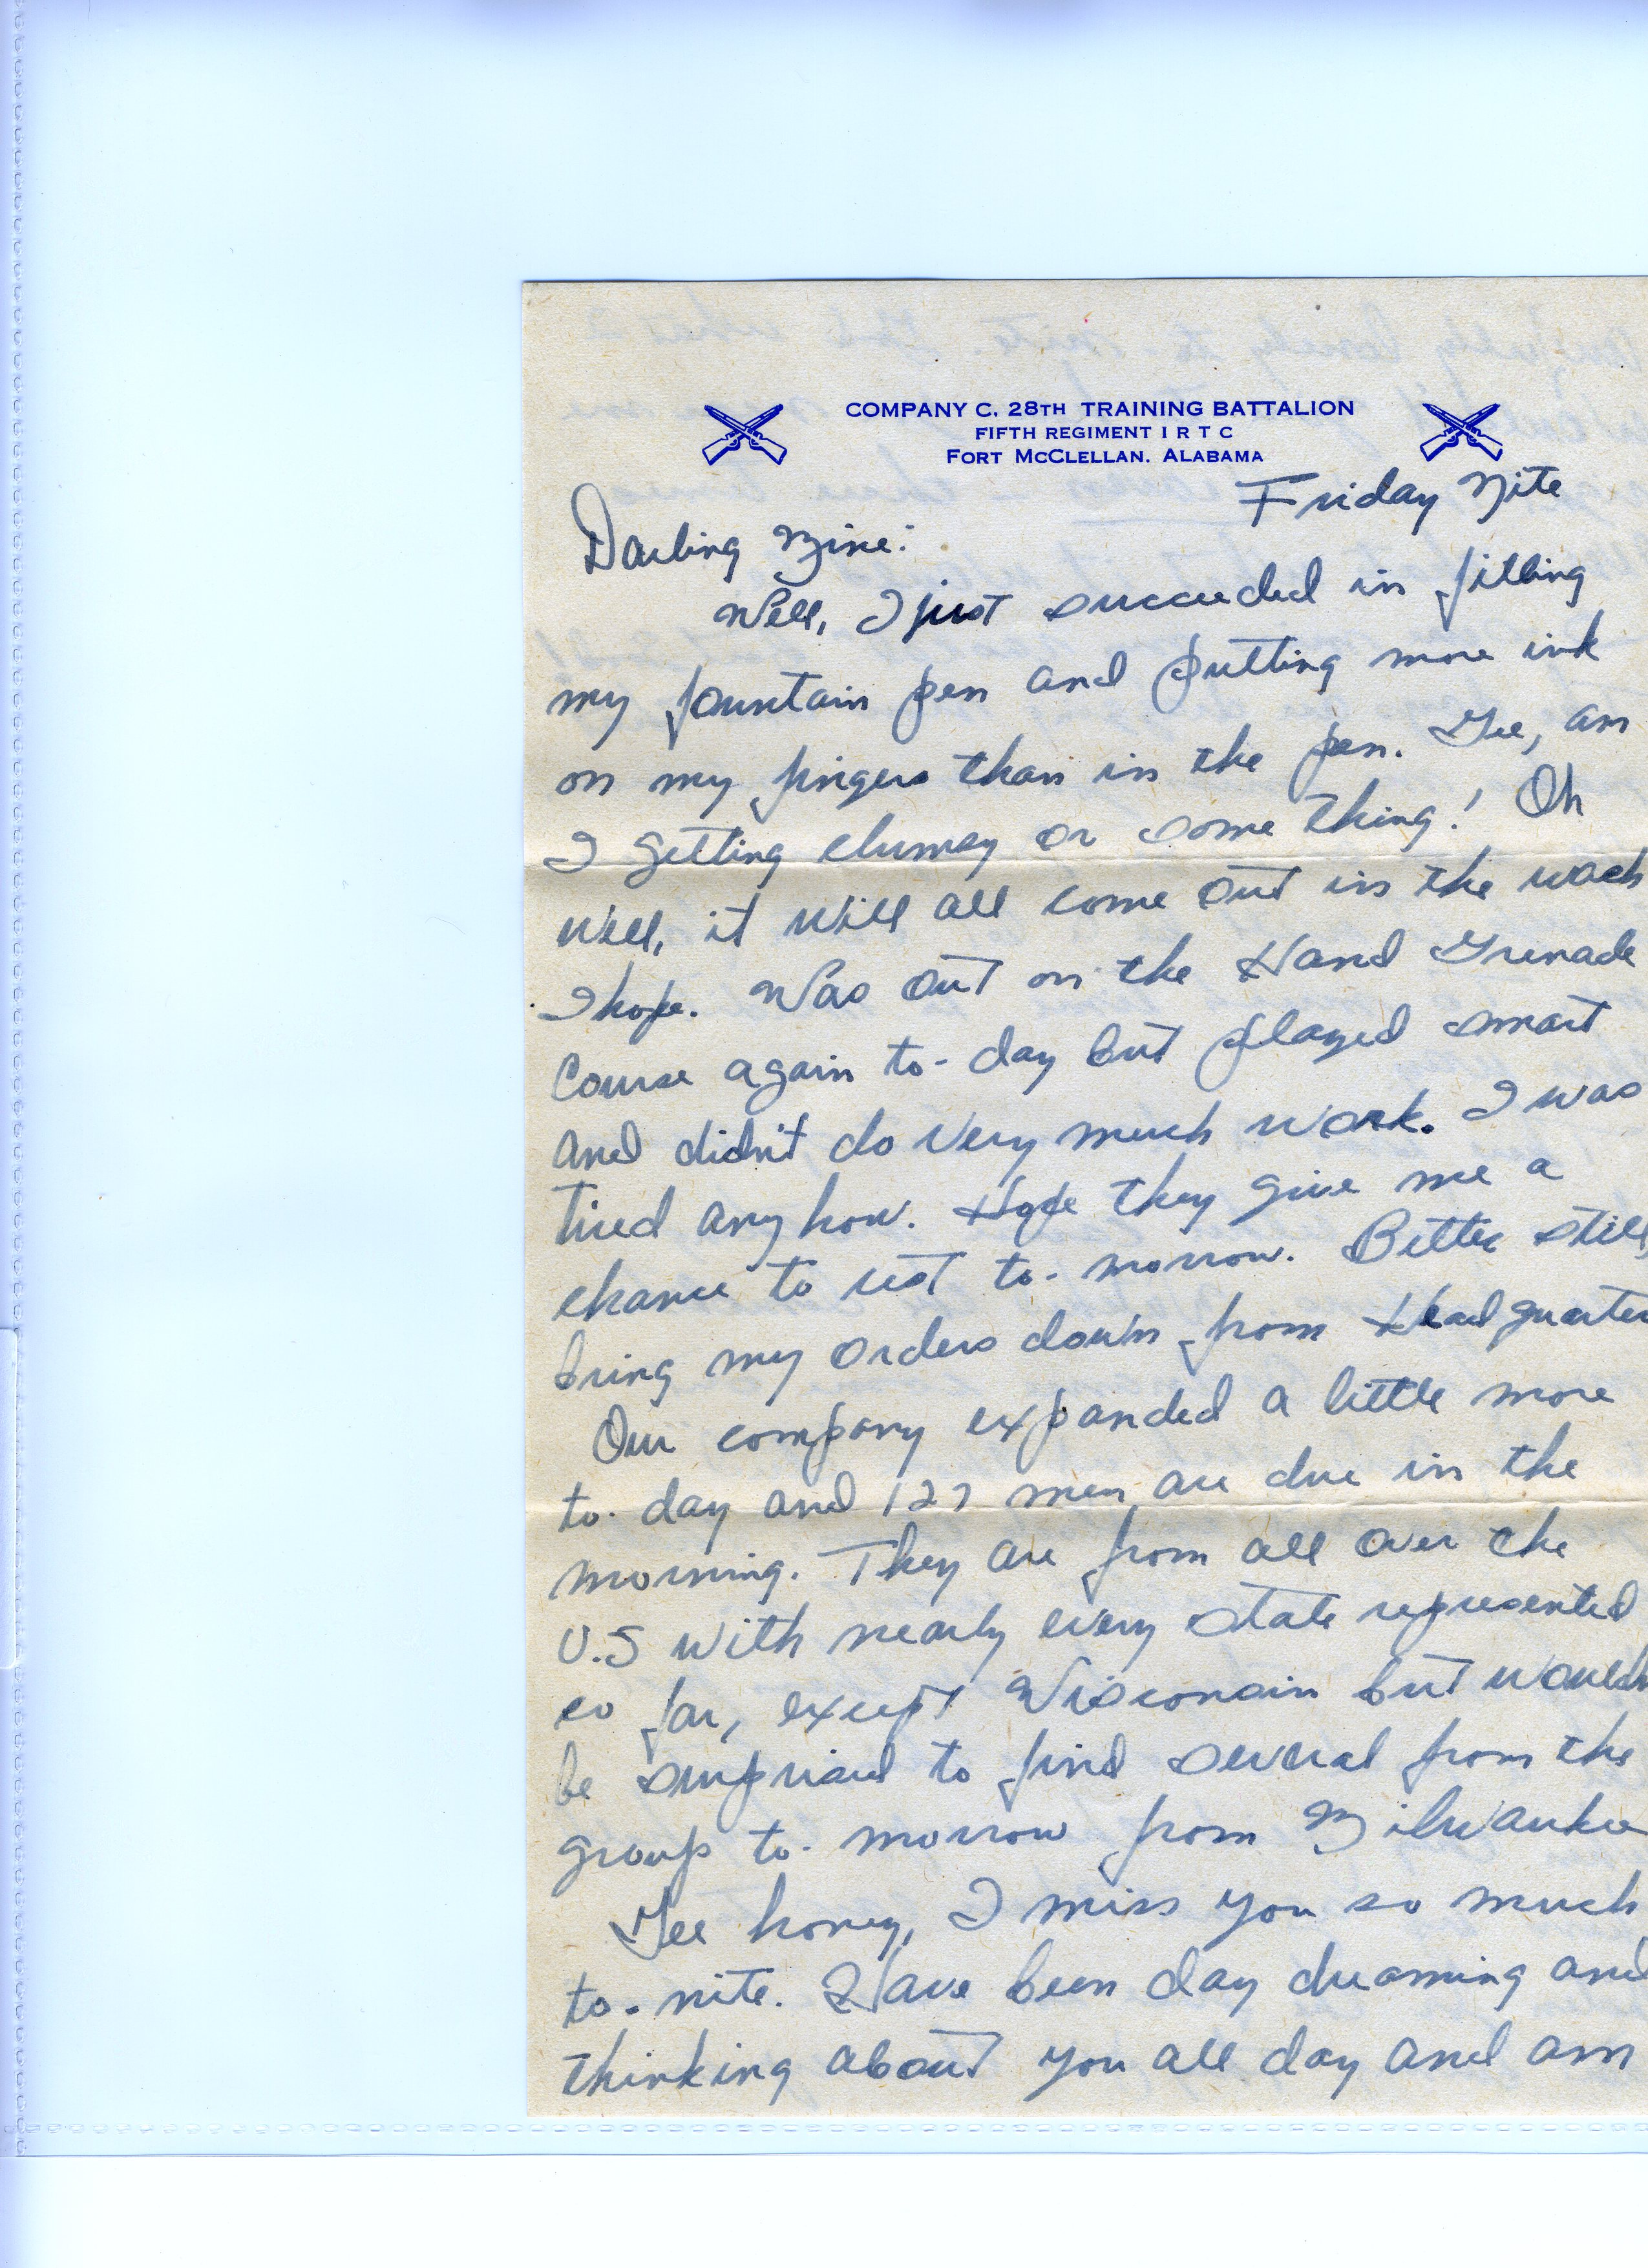 COMPANY C. 28TH TRAINING BATTALION
FIFTH REGIMENT I R T C
FORT MCCLELLAN. ALABAMA
Friday Nite
Darling Mine:
Well, I just succeeded in filling
my fountain pen and putting more ink
on my fingers than in the pen. Gee, am
I getting clumsy or some thing! Oh
well, it will all come out in the wash
I hope. Was out on the Hand Grenade
Course again to-day but played smart
and didn't do very much work. I was
tired any how. Hope they give me a
chance to rest to-morrow. Better still,
bring my orders down from Headquarter
Our company expanded a little more
to-day and 127 men are due in the
morning. They are from all over the
U.S with nearly every state represented
so far, except Wisconsin but would
be surprised to find several from the
group to-morrow from Milwaukee
Gee honey, I miss you so much
to-nite. Have been day dreaming and
thinking about you all day and am